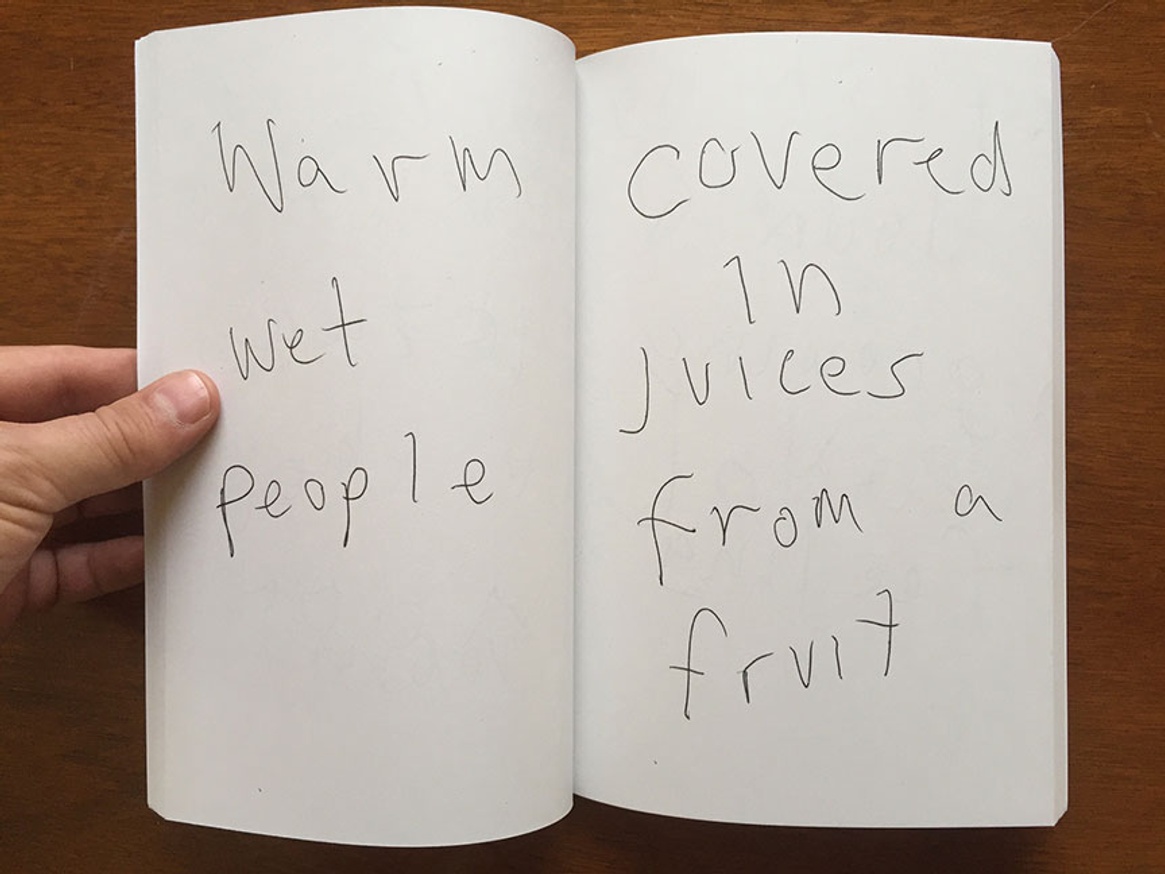 Warm
wet
people
covered
in
juices
from a
fruit